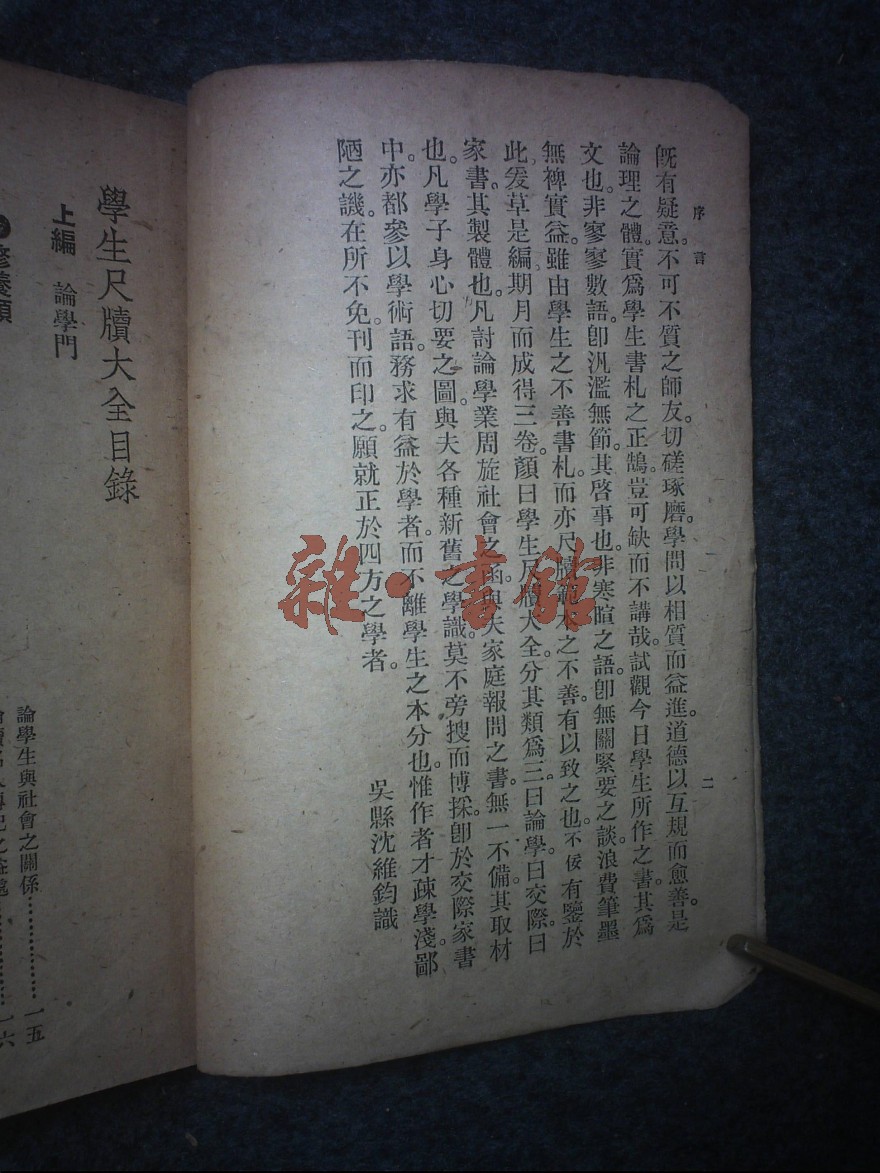 序言
二
既有疑意。不可不質之師友。切磋琢磨。學問以相質而益進。道德以互規而愈善。是
論理之體。實爲學生書札之正鵠。豈可缺而不講哉。試觀今日學生所作之書。其爲
文也。非寥寥數語。卽汎濫無節。其啓事也。非寒暄之語。卽無關緊要之談。浪費筆墨
無裨實益。雖由學生之不善書札。而亦尺牘範本之不善。有以致之也。不佞有鑒於
此。爰草是編。期月而成。得三卷。顏曰學生尺牘大全。分其類爲三。曰論學。曰交際。曰
家書。其製體也。凡討論學業周旋社會之函。與夫家庭報問之書。無一不備。其取材
也。凡學子身心切要之圖。與夫各種新舊之學識。莫不旁搜而博採。卽於交際家書
中。亦都參以學術語。務求有益於學者。而不離學生之本分也。惟作者才疎學淺。鄙
陋之譏。在所不免。刊而印之。願就正於四方之學者。
吳縣沈維鈞識
學生尺牘大全目錄
上編 論學門
修養類
論學生與社會之關係……………一五
之益處……………一六
雜·書館